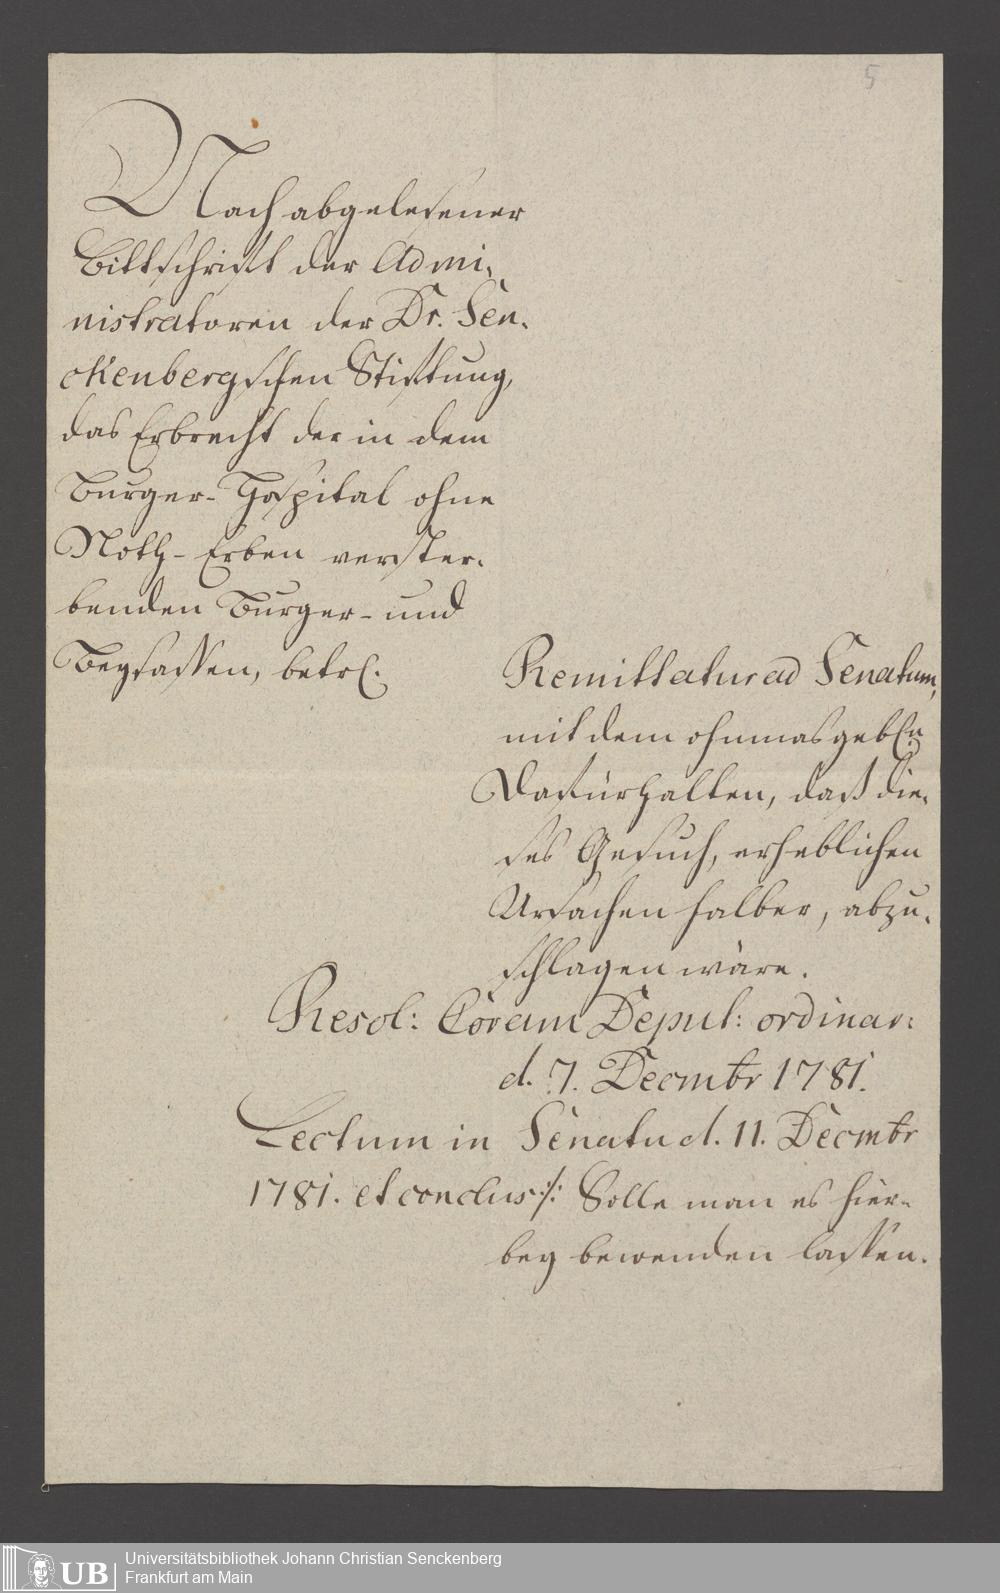 5
Nach abgelesener
Bittschrifft der Admi-
nistratoren der Dr. Sen-
ckenbergschen Stifftung,
das Erbrecht der in dem
Burger-Hospital ohne
Noth-Erben verster-
benden Burger- und
Beysassen, betrl.
Remittatur ad Senatum,
mit dem ohnmasgebln
Dafürhalten, daß die-
ses Gesuch, erheblichen
Ursachen halber, abzu-
schlagen wäre.
Resol: Coram Deput: ordinar:
d. 7. Decmbr 1781.
Lectum in Senatu d. 11. Decmbr
1781. et conclus: /: Solle man es hier-
bey bewenden lassen.
UB
Universitätsbibliothek Johann Christian Senckenberg
Frankfurt am Main